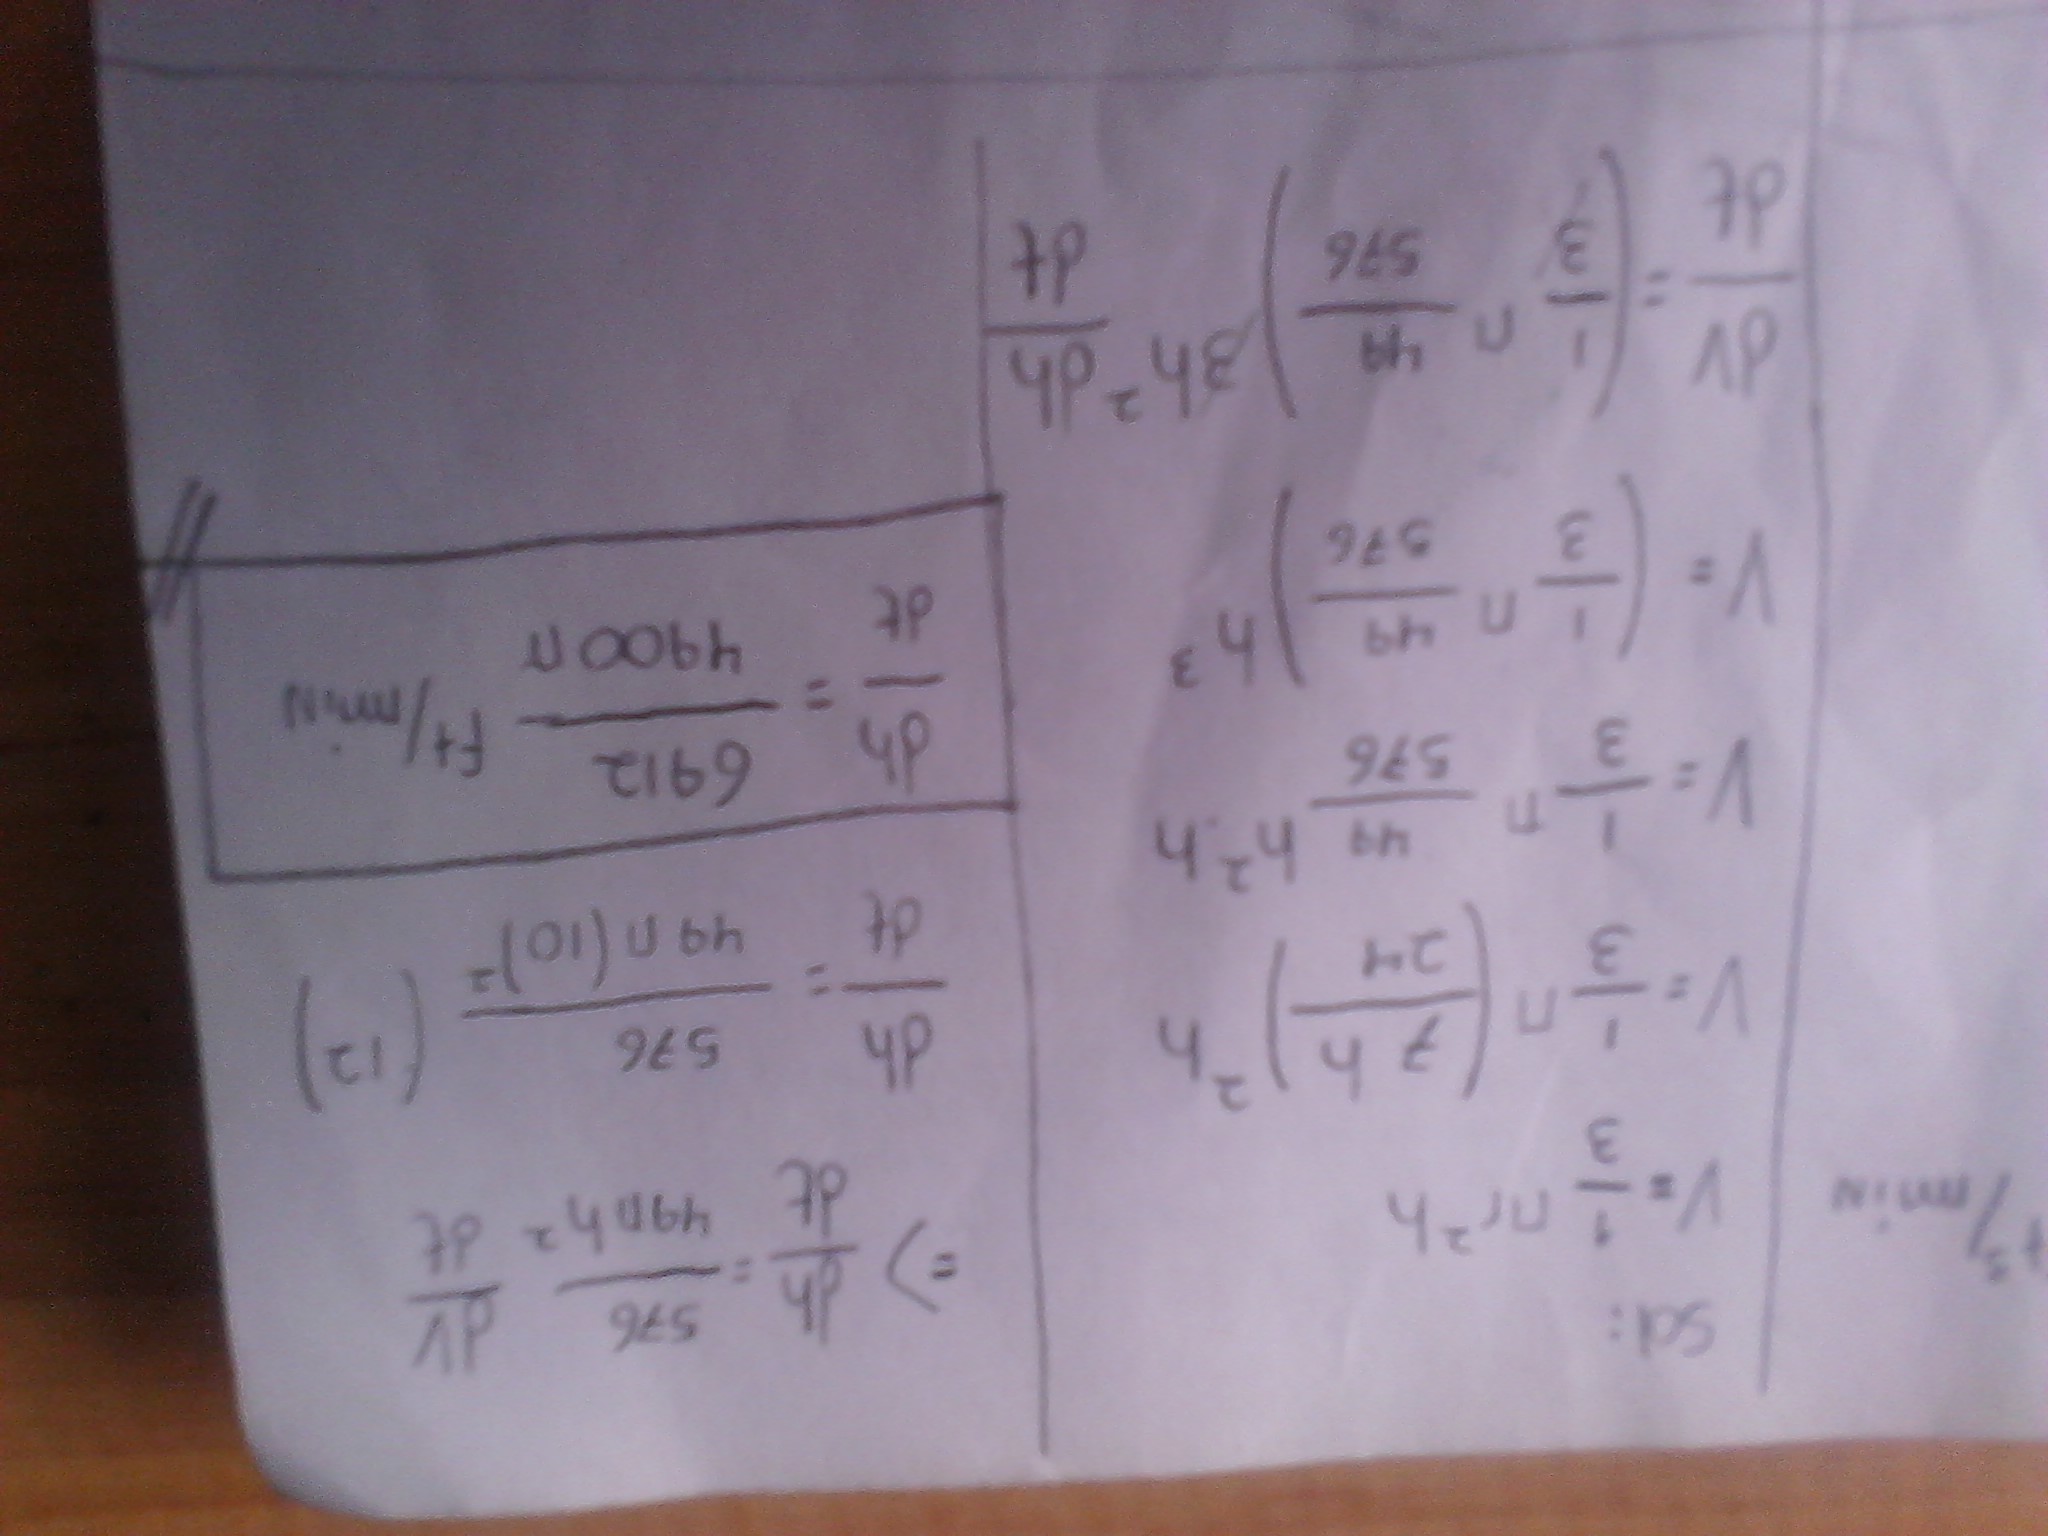 t³/min
Sol:
V = 1/3 πr²h
V = 1/3 π (7h/24)² h
V = 1/3 π 49/576 h²·h
V = (1/3 π 49/576) h³
dV/dt = (1/3 π 49/576) 3h² dh/dt
=> dh/dt = 576/49πh² dV/dt
dh/dt = 576/49π(10)² (12)
dh/dt = 6912/4900π ft/min